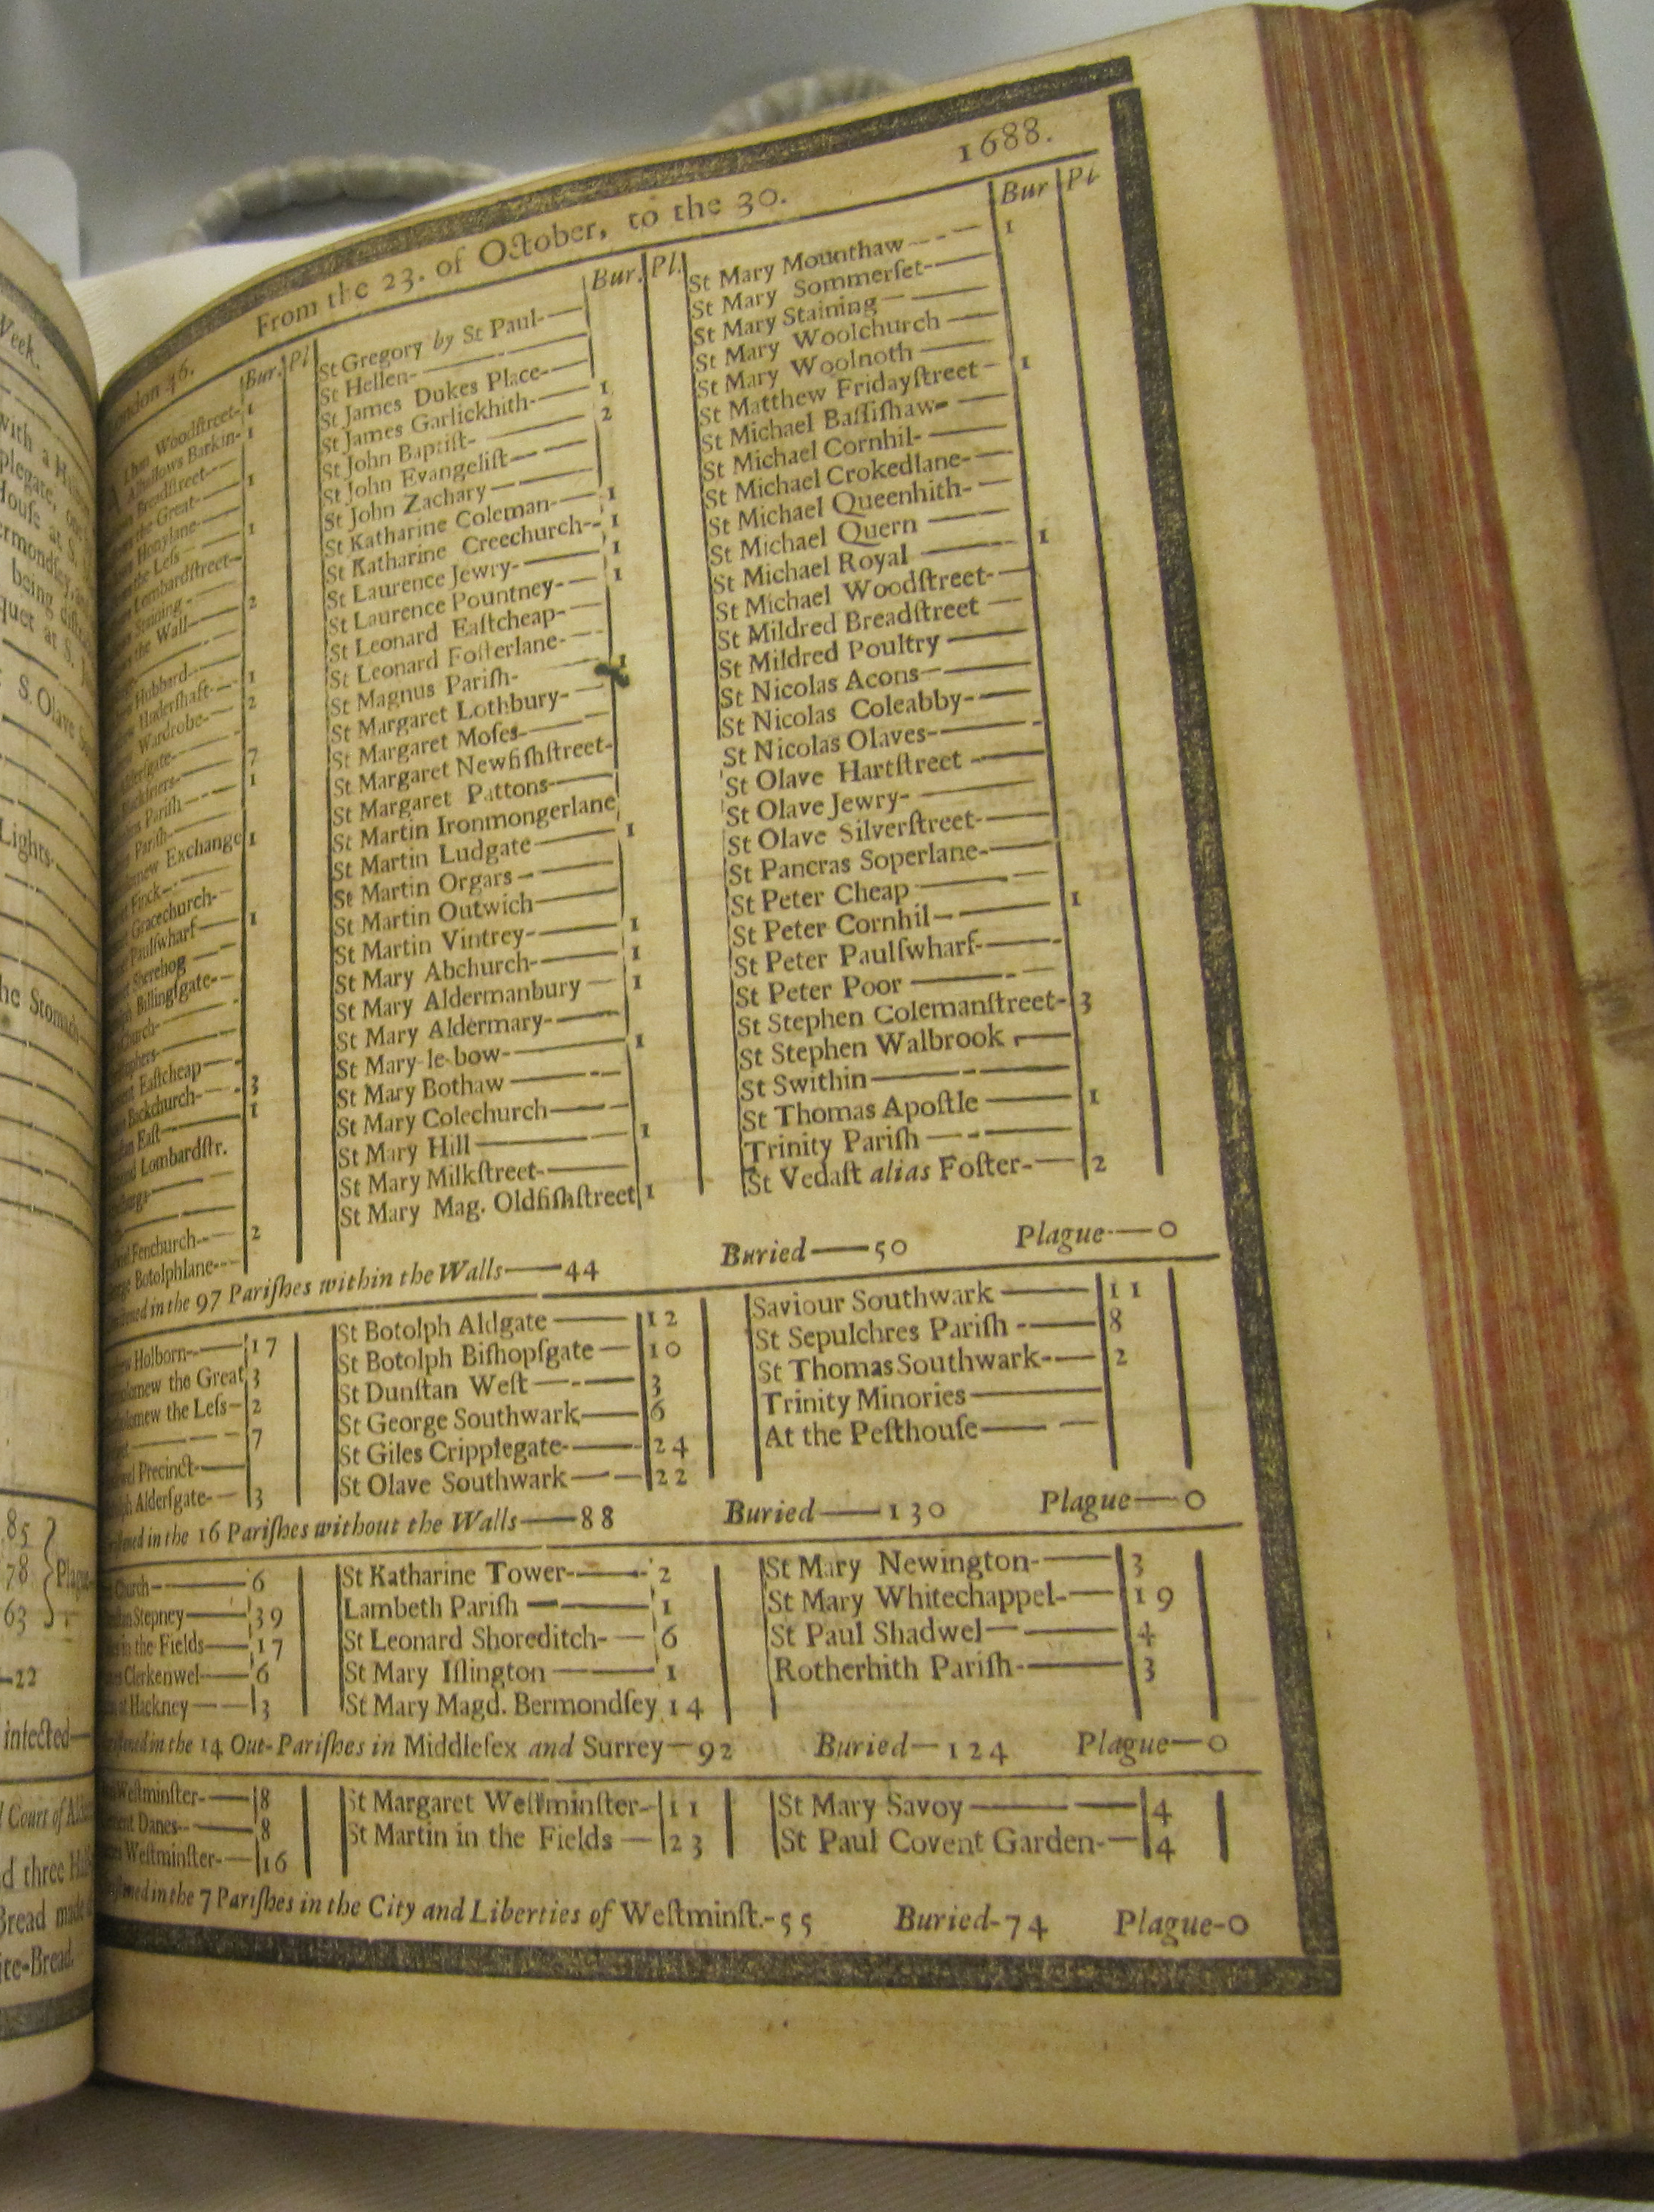 Week.
with a
House at S.
being
quet at S.
S. Olave
Lights
the Stomach
85
78
63
Plague
22
infected
Court of
d three
Bread made
ite-Bread.
London 46. From the 23. of October, to the 30. 1688.
Bur. Pl
Woodſtreet- 1
Alhallows Barkin- 1
Breadſtreet
the Great 1
Honylane
the Leſs 1
Lombardſtreet
Staining
the Wall 2
Hubbard
Underſhaft 1
Wardrobe 2
Alderſgate
Blackfriers 7
Pariſh 1
Pariſh
Exchange 1
Finck
Gracechurch
Paulſwharf 1
Sherehog
Billingſgate
Church
Eaſtcheap
Backchurch 3
Eaſt 1
Lombardſtr.
Fenchurch 2
Botolphlane
Bur. Pl.
St Gregory by St Paul
St Hellen
St James Dukes Place
St James Garlickhith 1
St John Baptiſt 2
St John Evangeliſt
St John Zachary
St Katharine Coleman 1
St Katharine Creechurch 1
St Laurence Jewry 1
St Laurence Pountney 1
St Leonard Eaſtcheap
St Leonard Foſterlane
St Magnus Pariſh 1
St Margaret Lothbury
St Margaret Moſes
St Margaret Newfiſhſtreet
St Margaret Pattons
St Martin Ironmongerlane
St Martin Ludgate 1
St Martin Orgars
St Martin Outwich
St Martin Vintrey 1
St Mary Abchurch 1
St Mary Aldermanbury 1
St Mary Aldermary
St Mary le bow 1
St Mary Bothaw
St Mary Colechurch
St Mary Hill 1
St Mary Milkſtreet
St Mary Mag. Oldfiſhſtreet 1
Bur Pl
St Mary Mounthaw 1
St Mary Sommerſet
St Mary Staining
St Mary Woolchurch
St Mary Woolnoth
St Matthew Fridayſtreet 1
St Michael Baſſiſhaw
St Michael Cornhil
St Michael Crokedlane
St Michael Queenhith
St Michael Quern
St Michael Royal 1
St Michael Woodſtreet
St Mildred Breadſtreet
St Mildred Poultry
St Nicolas Acons
St Nicolas Coleabby
St Nicolas Olaves
St Olave Hartſtreet
St Olave Jewry
St Olave Silverſtreet
St Pancras Soperlane
St Peter Cheap
St Peter Cornhil 1
St Peter Paulſwharf
St Peter Poor
St Stephen Colemanſtreet 3
St Stephen Walbrook
St Swithin
St Thomas Apoſtle 1
Trinity Pariſh
St Vedaſt alias Foſter 2
in the 97 Pariſhes within the Walls 44 Buried 50 Plague 0
Holborn 17
the Great 3
the Leſs 2
7
Precinct
Alderſgate 3
St Botolph Aldgate 12
St Botolph Biſhopſgate 10
St Dunſtan Weſt 3
St George Southwark 6
St Giles Cripplegate 24
St Olave Southwark 22
Saviour Southwark 11
St Sepulchres Pariſh 8
St Thomas Southwark 2
Trinity Minories
At the Peſthouſe
in the 16 Pariſhes without the Walls 88 Buried 130 Plague 0
Church 6
Stepney 39
in the Fields 17
Clerkenwel 6
Hackney 3
St Katharine Tower 2
Lambeth Pariſh 1
St Leonard Shoreditch 6
St Mary Iſlington 1
St Mary Magd. Bermondſey 14
St Mary Newington 3
St Mary Whitechappel 19
St Paul Shadwel 4
Rotherhith Pariſh 3
in the 14 Out-Pariſhes in Middleſex and Surrey 92 Buried 124 Plague 0
Weſtminſter 8
Danes 8
Weſtminſter 16
St Margaret Weſtminſter 11
St Martin in the Fields 23
St Mary Savoy 4
St Paul Covent Garden 4
in the 7 Pariſhes in the City and Liberties of Weſtminſt.-55 Buried-74 Plague-0